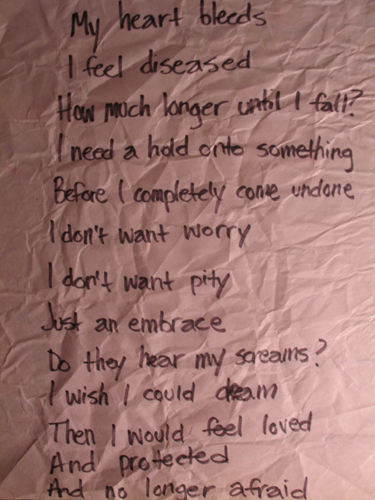 My heart bleeds
I feel diseased
How much longer until I fall?
I need a hold onto something
Before I completely come undone
I don't want worry
I don't want pity
Just an embrace
Do they hear my screams?
I wish I could dream
Then I would feel loved
And protected
And no longer afraid